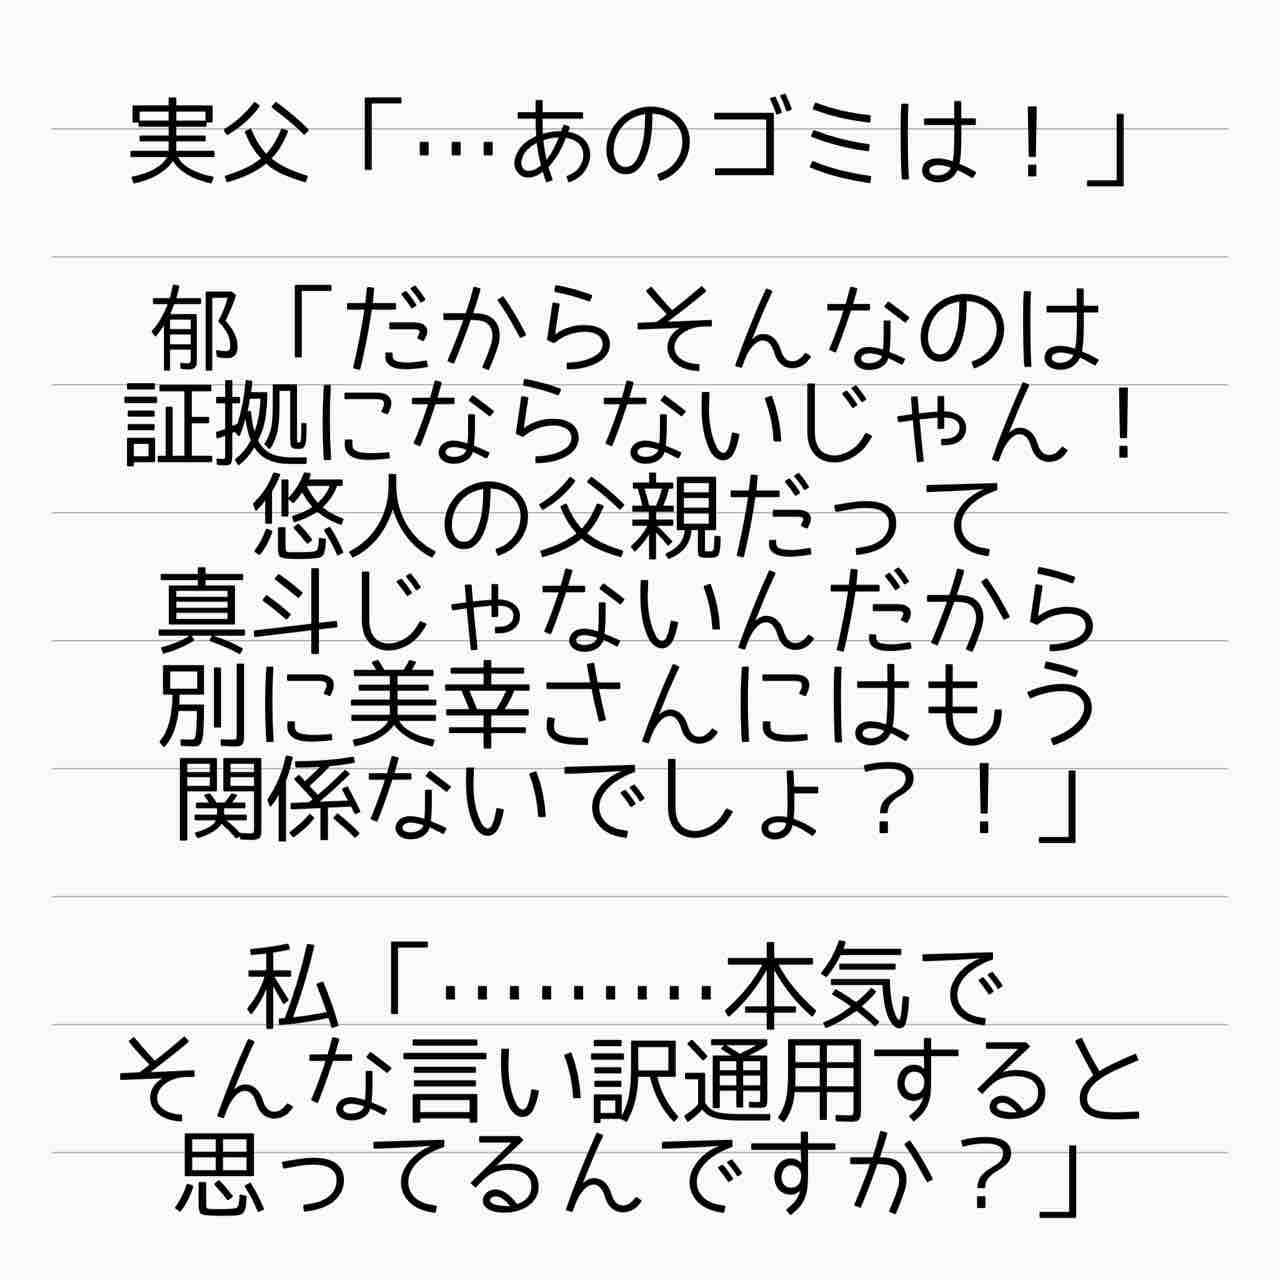 実父「…あのゴミは！」
郁「だからそんなのは
証拠にならないじゃん！
悠人の父親だって
真斗じゃないんだから
別に美幸さんにはもう
関係ないでしょ？！」
私「………本気で
そんな言い訳通用すると
思ってるんですか？」